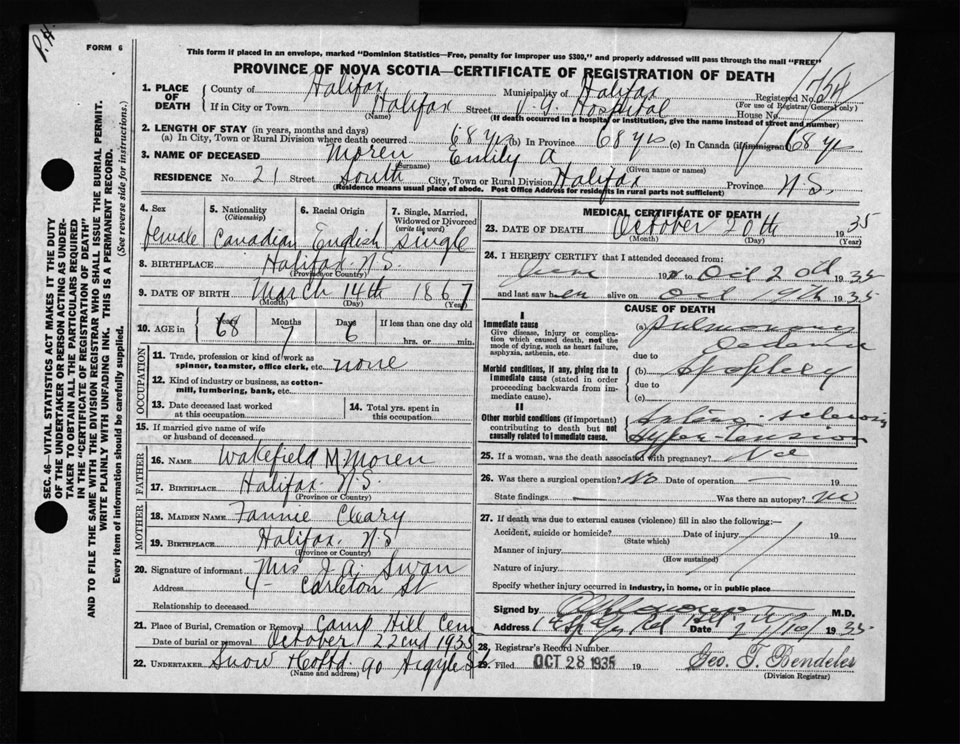 P.H.
FORM 6
This form if placed in an envelope, marked "Dominion Statistics—Free, penalty for improper use $300," and properly addressed will pass through the mail "FREE"
PROVINCE OF NOVA SCOTIA—CERTIFICATE OF REGISTRATION OF DEATH
1. PLACE OF DEATH
County of Halifax Municipality of Halifax Registered No.
(For use of Registrar General only)
If in City or Town Halifax Street V. G. Hospital House No.
(Name) (If death occurred in a hospital or institution, give the name instead of street and number)
2. LENGTH OF STAY (in years, months and days)
(a) In City, Town or Rural Division where death occurred 68 yrs (b) In Province 68 yrs (c) In Canada (if immigrant) 68 yrs
3. NAME OF DECEASED Moren Emily A
(Surname) (Given name or names)
RESIDENCE No. 21 Street South City, Town or Rural Division Halifax Province N.S.
(Residence means usual place of abode. Post Office Address for residents in rural parts not sufficient)
4. Sex female
5. Nationality (Citizenship) Canadian
6. Racial Origin English
7. Single, Married, Widowed or Divorced (write the word) Single
8. BIRTHPLACE Halifax N.S.
(Province or Country)
9. DATE OF BIRTH March 14th 1867
(Month) (Day) (Year)
10. AGE in Years Months Days If less than one day old
68 7 6 hrs. or min.
OCCUPATION
11. Trade, profession or kind of work as spinner, teamster, office clerk, etc. none
12. Kind of industry or business, as cotton-mill, lumbering, bank, etc.
13. Date deceased last worked at this occupation
14. Total yrs. spent in this occupation
15. If married give name of wife or husband of deceased
FATHER
16. Name Wakefield M Moren
17. Birthplace Halifax N.S.
(Province or Country)
MOTHER
18. Maiden Name Fannie Cleary
19. Birthplace Halifax N.S
(Province or Country)
20. Signature of informant Mrs J. A. Swan
Address Carleton St
Relationship to deceased
21. Place of Burial, Cremation or Removal Camp Hill Cem
Date of burial or removal October 22nd 1935
22. UNDERTAKER Snow 90 Argyle St
(Name and address)
MEDICAL CERTIFICATE OF DEATH
23. DATE OF DEATH October 20th 1935
(Month) (Day) (Year)
24. I HEREBY CERTIFY that I attended deceased from:
June 19 to Oct 20th 1935
and last saw her alive on Oct 19th 1935
CAUSE OF DEATH
I
Immediate cause
Give disease, injury or complication which caused death, not the mode of dying, such as heart failure, asphyxia, asthenia, etc.
(a) Pulmonary Oedema
due to
Morbid conditions, if any, giving rise to immediate cause (stated in order proceeding backwards from immediate cause).
(b) Apoplexy
due to
(c)
II
Other morbid conditions (if important) contributing to death but not causally related to immediate cause.
Arterio-sclerosis
Hyper-tension
25. If a woman, was the death associated with pregnancy? No
26. Was there a surgical operation? No Date of operation — 19
State findings — Was there an autopsy? no
27. If death was due to external causes (violence) fill in also the following:—
Accident, suicide or homicide? Date of injury 19
(State which)
Manner of injury
(How sustained)
Nature of injury
Specify whether injury occurred in industry, in home, or in public place
Signed by M.D.
Address Date 21/10/1935
28. Registrar's Record Number
29. Filed OCT 28 1935 19 Geo. T. Bendeler
(Division Registrar)
SEC. 46—VITAL STATISTICS ACT MAKES IT THE DUTY
OF THE UNDERTAKER OR PERSON ACTING AS UNDER-
TAKER TO OBTAIN ALL THE PARTICULARS REQUIRED
IN THE "CERTIFICATE OF REGISTRATION OF DEATH"
AND TO FILE THE SAME WITH THE DIVISION REGISTRAR WHO SHALL ISSUE THE BURIAL PERMIT.
WRITE PLAINLY WITH UNFADING INK. THIS IS A PERMANENT RECORD.
Every item of information should be carefully supplied. (See reverse side for instructions.)